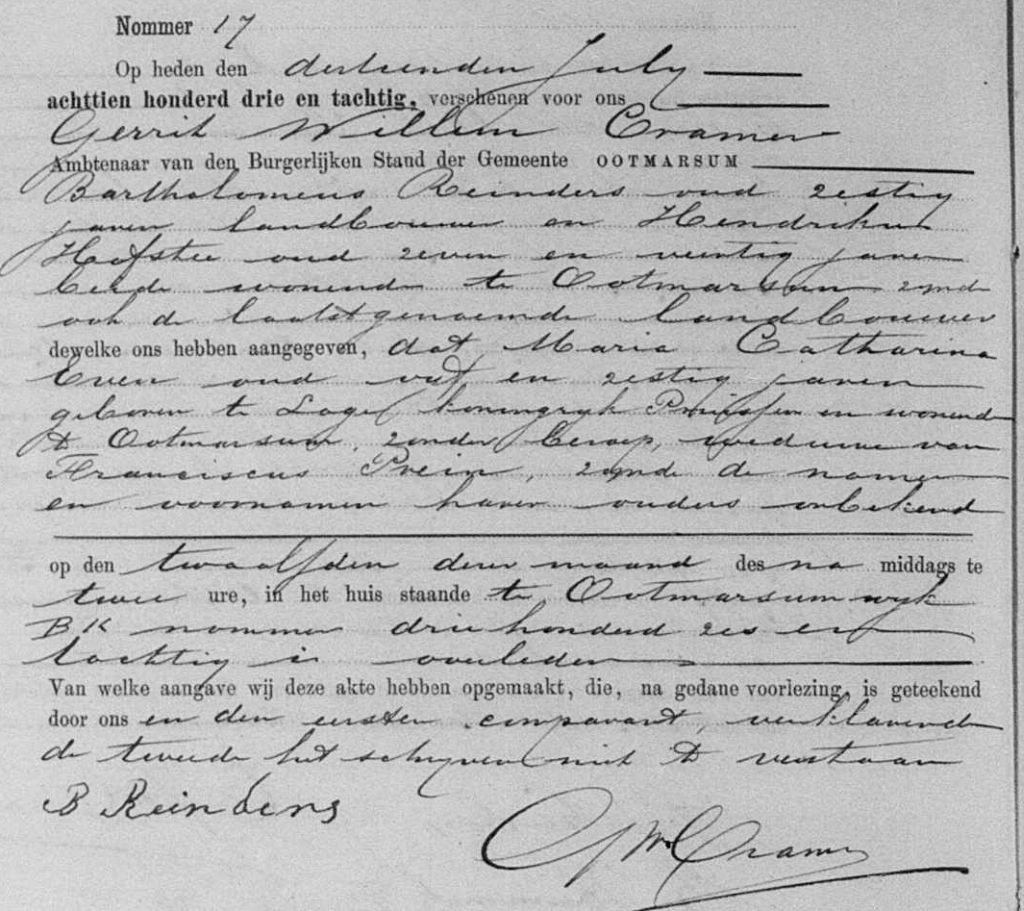 Nommer 17
Op heden den dertienden July
achttien honderd drie en tachtig, verschenen voor ons
Gerrit Willem Cramer
Ambtenaar van den Burgerlijken Stand der Gemeente OOTMARSUM
Bartholomeus Reinders oud zestig
jaren landbouwer en Hendrikus
Hofstee oud zeven en veertig jaren
beide wonende te Ootmarsum zynde
ook de laatstgenoemde landbouwer
dewelke ons hebben aangegeven, dat Maria Catharina
Even oud vyf en zestig jaren
geboren te Lage koningryk Pruissen en wonende
te Ootmarsum, zonder beroep, weduwe van
Franciscus Prein, zynde de namen
en voornamen harer ouders onbekend
op den twaalfden dezer maand des na middags te
twee ure, in het huis staande te Ootmarsum wyk
B K nommer driehonderd zes en
tachtig is overleden
Van welke aangave wij deze akte hebben opgemaakt, die, na gedane voorlezing, is geteekend
door ons en den eersten comparant, verklarende
de tweede het schryven niet te verstaan
B Reinders
GW Cramer